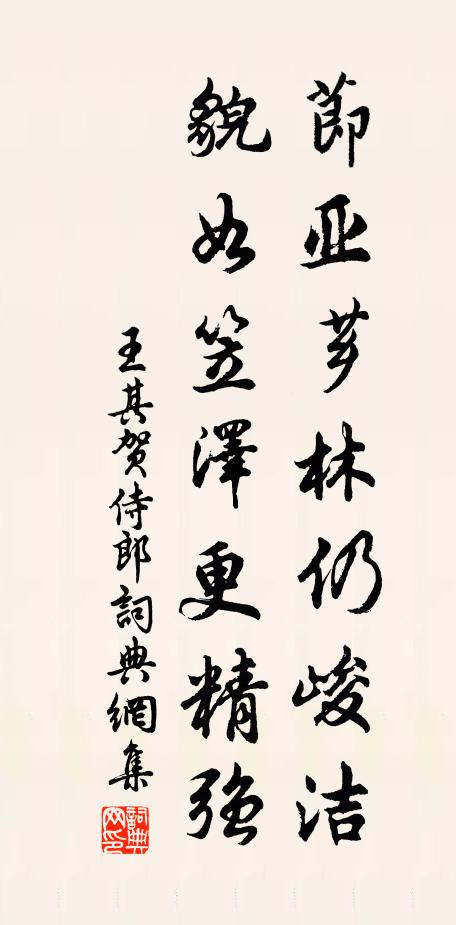 莭亚芗林仍峻洁
貌如笠澤更精强
王其賀侍郎詞典網集
詞典网印